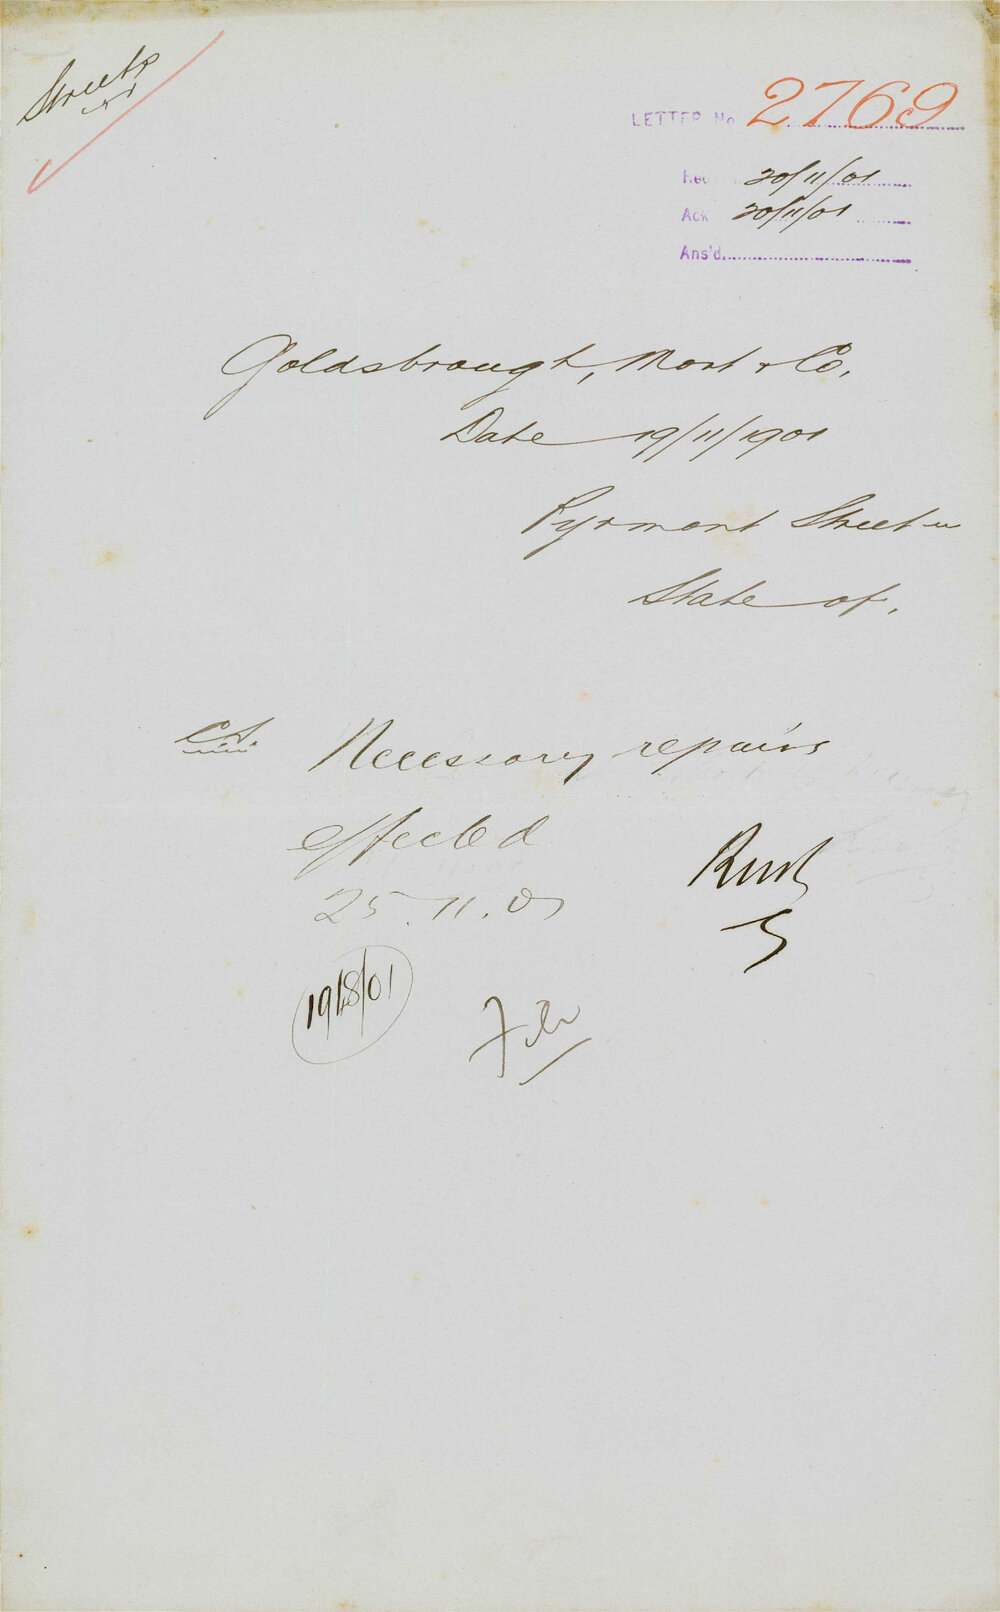 Streets
LETTER No 2769
Rec 20/11/01
Ack 20/11/01
Ans'd
Goldsbrough, Mort & Co.
Date 19/11/1901
Pyrmont Street
State of.
C.S. Necessary repairs
effected
25.11.01
19/11/01
File